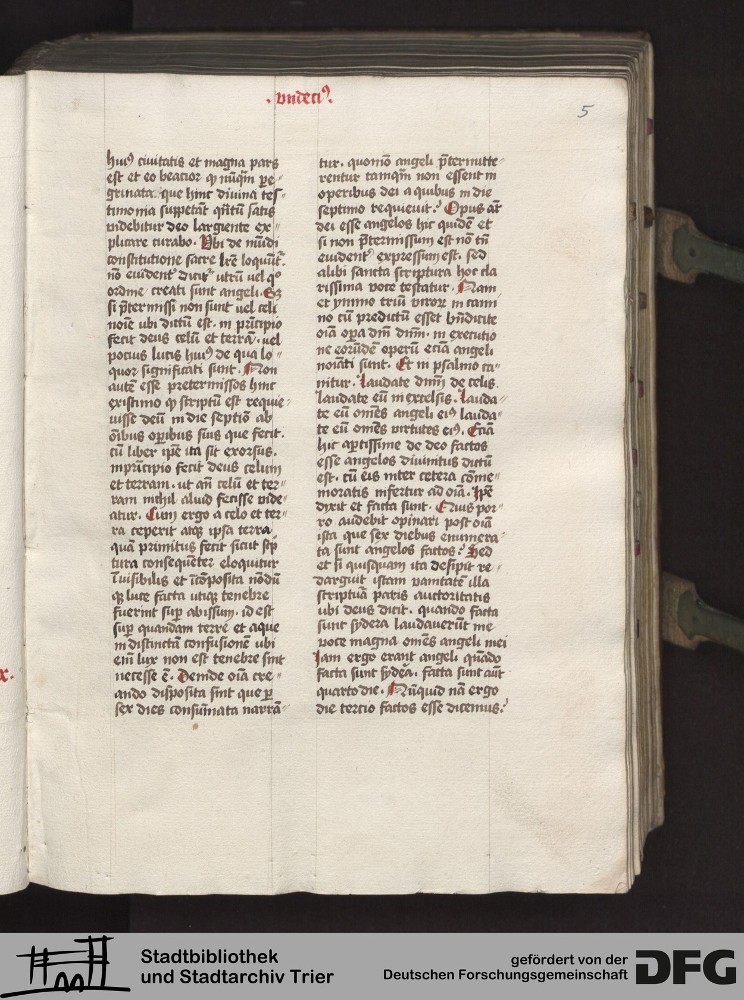 . vndeciꝰ.
5
huiꝰ ciuitatis et magna pars
est et eo beacior ꝙ nūqm̄ pe-
grinata que hinc diuina tes-
timonia suppetāt qn̄tū satis
videbitur deo largiente ex-
plicare curabo. Vbi de mūdi
constitutione sacre lr̄e loquūt᷑.
nō euident᷑ dicit᷑ utrū uel qͦ
ordine creati sunt angeli. Sꝫ
si p̄termissi non sunt uel celi
noīe ubi dictū est. in pri͞cipio
fecit deus celū et terrā. uel
pocius lucis huiꝰ de qua lo-
quor significati sunt. Non
autē esse pretermissos hinc
existimo ꝙ scriptū est requie-
uisse deū in die septīo ab
oībus oꝑibus suis que fecit.
cū liber ip̄e ita sit exorsus.
inprīcipio fecit deus celum
et terram. ut an̄ celū et ter-
ram nichil aliud fecisse vide-
atur. Cum ergo a celo et ter-
ra ceperit atqꝫ ipsa terra
quā primitus fecit sicut sc̄p
tura consequēter eloquitur
īuisibilis et īcōposita nōdū
qꝫ luce facta utiqꝫ tenebre
fuerint suꝑ abissum. id est
suꝑ quandam terre et aque
indistinctā confusionē ubi
eni͞ lux non est tenebre sint
necesse ē. Deinde oīa cre-
ando disposita sint que ꝑ
sex dies consūmata narrā-
tur. quomō angeli p̄termitte-
rentur tamqm̄ non essent in
operibus dei a quibus in die
septimo requieuit. Opus at̄
dei esse angelos hic quidē et
si non p̄termissum est nō tn̄
euident᷑ expressum est. sed
alibi sancta scriptura hoc cla
rissima voce testatur. Nam
et ymmo triū viroꝝ in cami
no cū predictū esset bn̄dicite
oīa oꝑa dn̄i dnm̄. in executio
ne eorūdem operū eciā angeli
noīati sunt. Et in psalmo ca-
nitur. Laudate dn̄m de celis.
laudate eū in excelsis. Lauda-
te eū omēs angeli eiꝰ lauda-
te eū omēs virtutes eiꝰ. Eciā
hic aꝑtissime de deo factos
esse angelos diuinitus dictū
est. cū eis inter cetera cōme-
moratis infertur ad oīa. Ip̄e
dixit et facta sunt. Quis por-
ro audebit opinari post oīa
ista que sex diebus enumera-
ta sunt angelos factos. Sed
et si quisquam ita desipit re-
darguit istam vanitatē illa
scriptura paris auctoritatis
ubi deus dicit. quando facta
sunt sydera laudauerūt me
voce magna omēs angeli mei
Iam ergo erant angeli quādo
facta sunt sydera. facta sunt aūt
quarto die. Nūquid nā ergo
die tercio factos esse dicemus.
x.
Stadtbibliothek
und Stadtarchiv Trier
gefördert von der
Deutschen Forschungsgemeinschaft
DFG